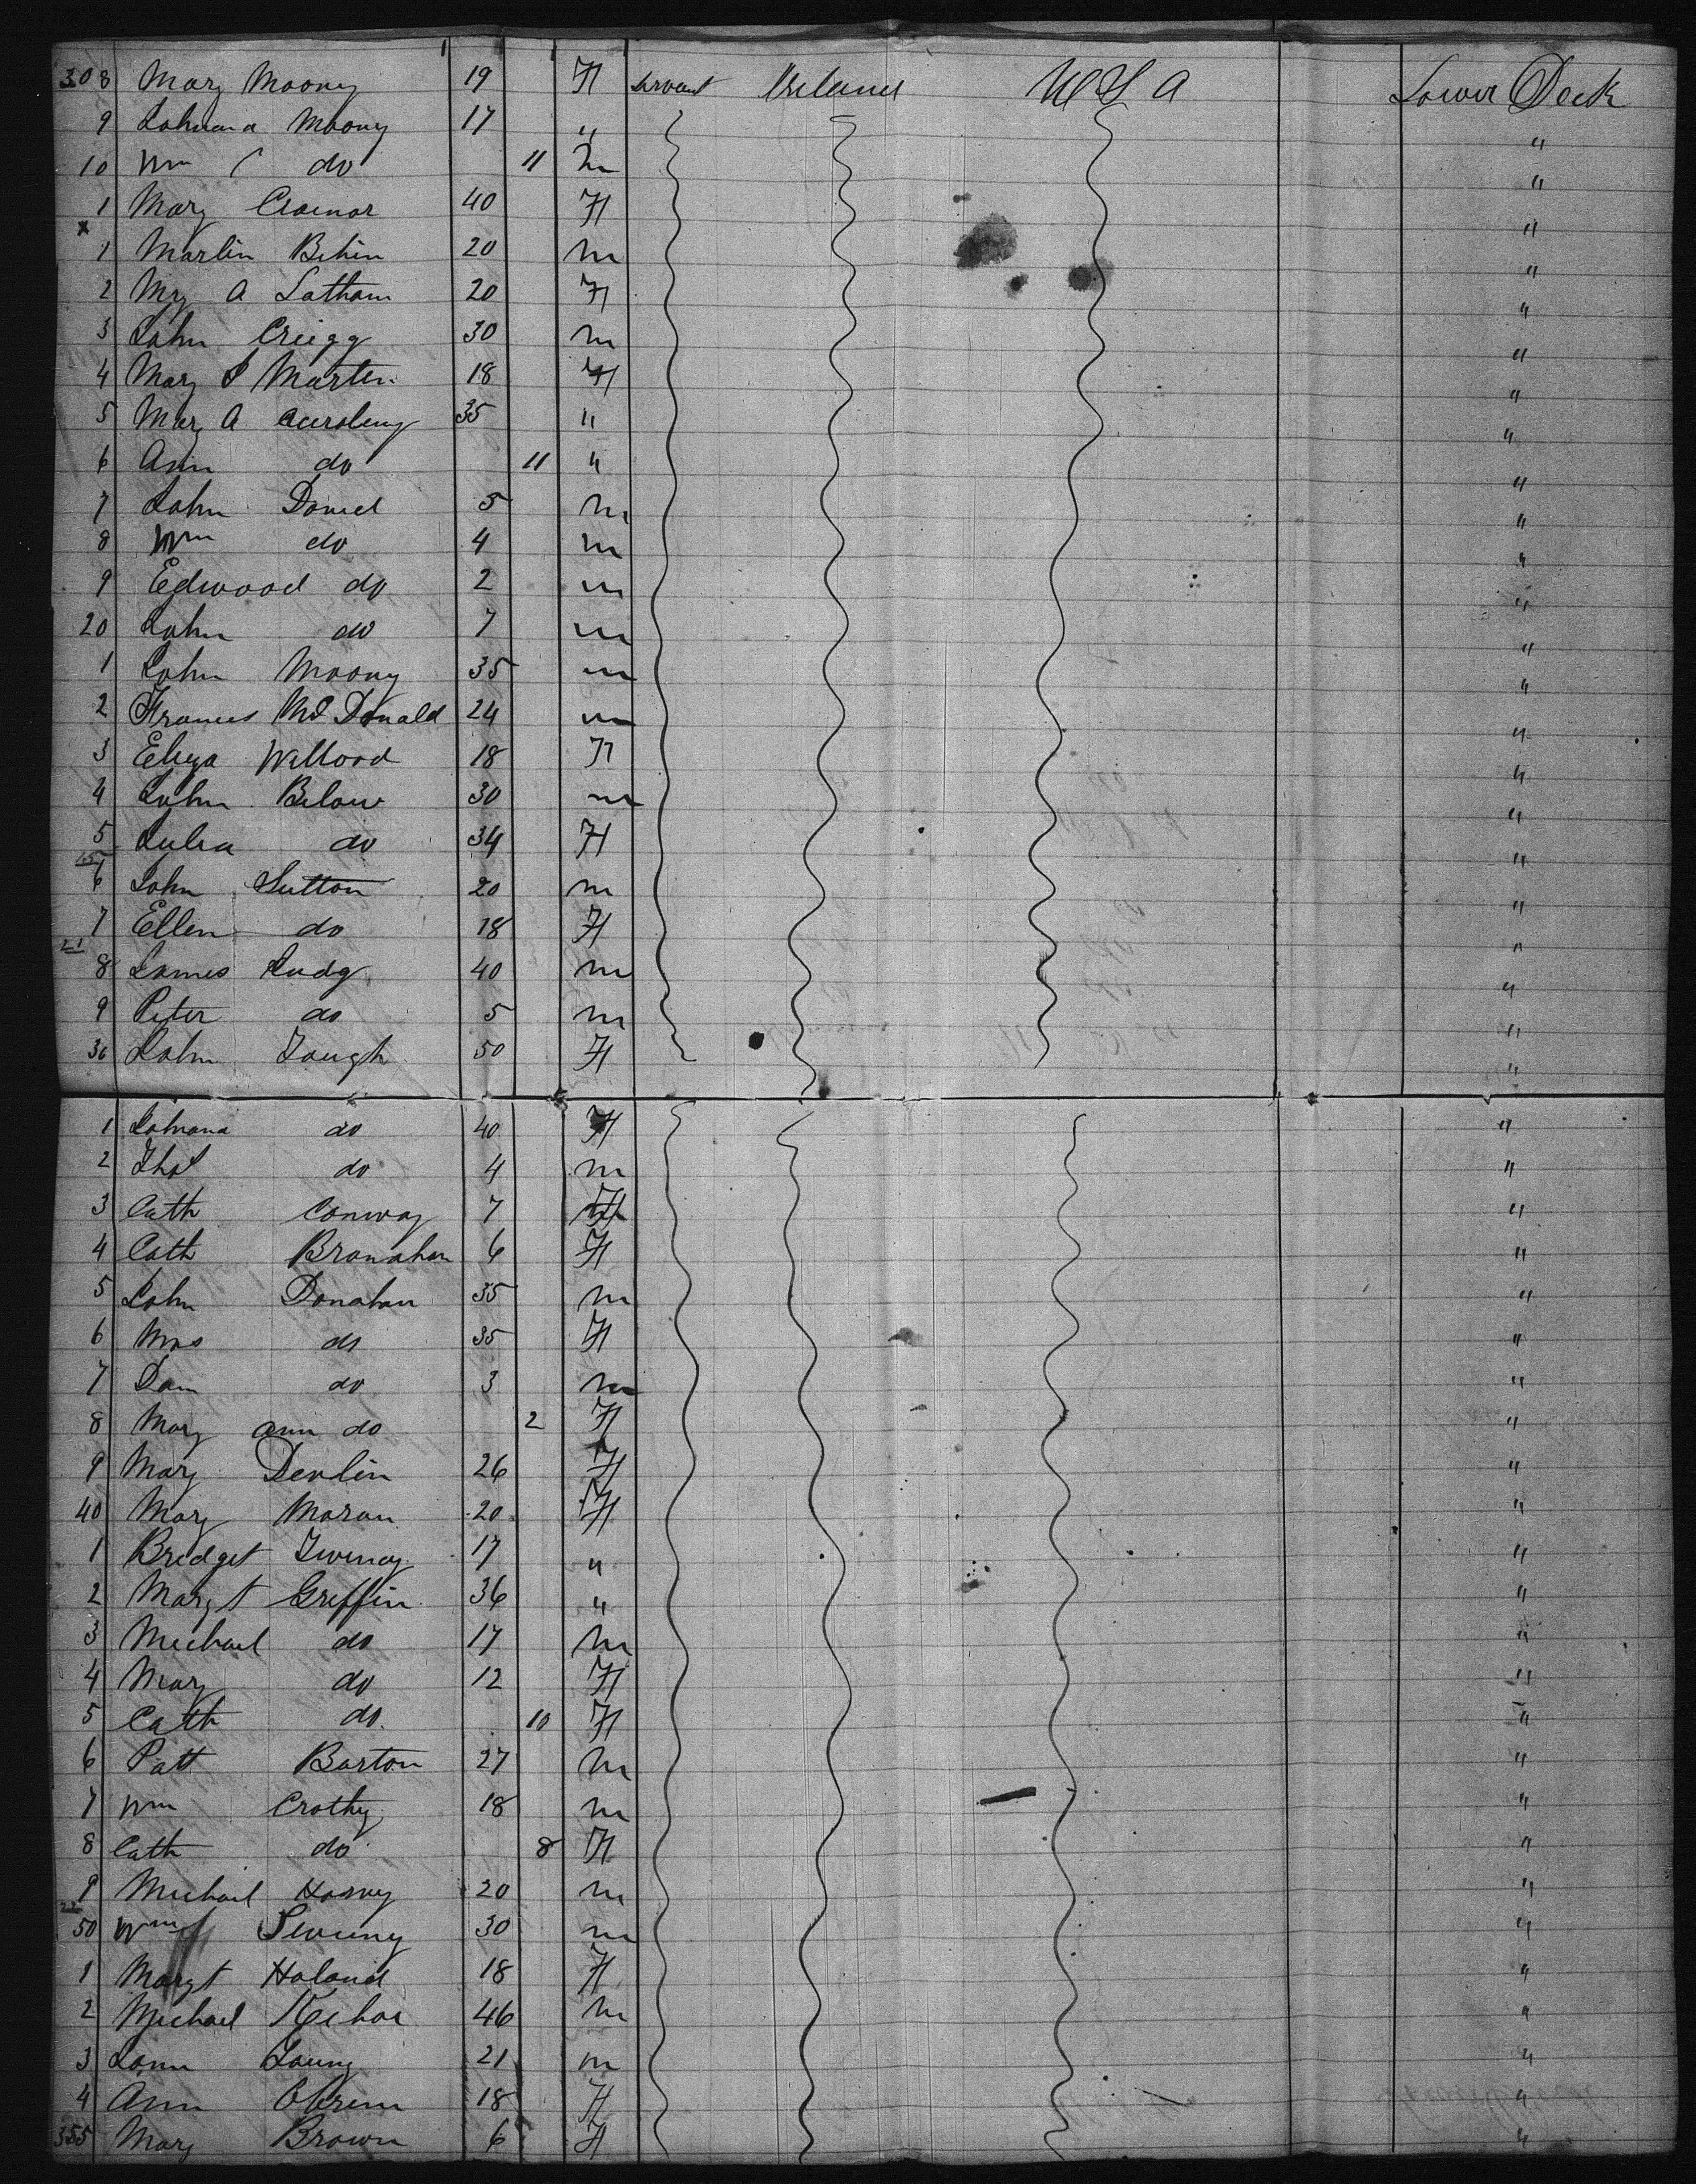 308 Mary Moony 19 F Servant Ireland U S A Lower Deck
9 Johana Moony 17 " "
10 Wm do 11 m "
1 Mary 40 F "
x 1 Martin Behin 20 m "
2 My A Latham 20 F "
3 John Creigg 30 m "
4 Mary Martin 18 F "
5 Mary A 35 " "
6 Ann do 11 " "
7 John Daniel 5 m "
8 Wm do 4 m "
9 Edwood do 2 m "
20 John do 7 m "
1 John Moony 35 m "
2 Frances McDonald 24 m "
3 Eliza 18 F "
4 John Below 30 m "
5 Julia do 34 F "
6 John Sutton 20 m "
7 Ellen do 18 F "
21
8 James Judg 40 m "
9 Peter do 5 m "
30 John Tough 50 F "
1 Johana do 40 F "
2 Thos do 4 m "
3 Cath Conway 7 F "
4 Cath Branahan 6 F "
5 John Donahan 35 m "
6 Mrs do 35 F "
7 Dan do 3 m "
8 Mary ann do 2 F "
9 Mary Devlin 26 F "
40 Mary Moran 20 F "
1 Bridget 17 " "
2 Margt Griffin 36 " "
3 Michael do 17 m "
4 Mary do 12 F "
5 Cath do 10 F "
6 Patt Barton 27 m "
7 Wm Crothy 18 m "
8 Cath do 8 F "
9 Michael 20 m "
50 Wm 30 m "
1 Margt Holand 18 F "
2 Michael 46 m "
3 Young 21 m "
4 Ann Obrein 18 F "
355 Mary Brown 6 F "